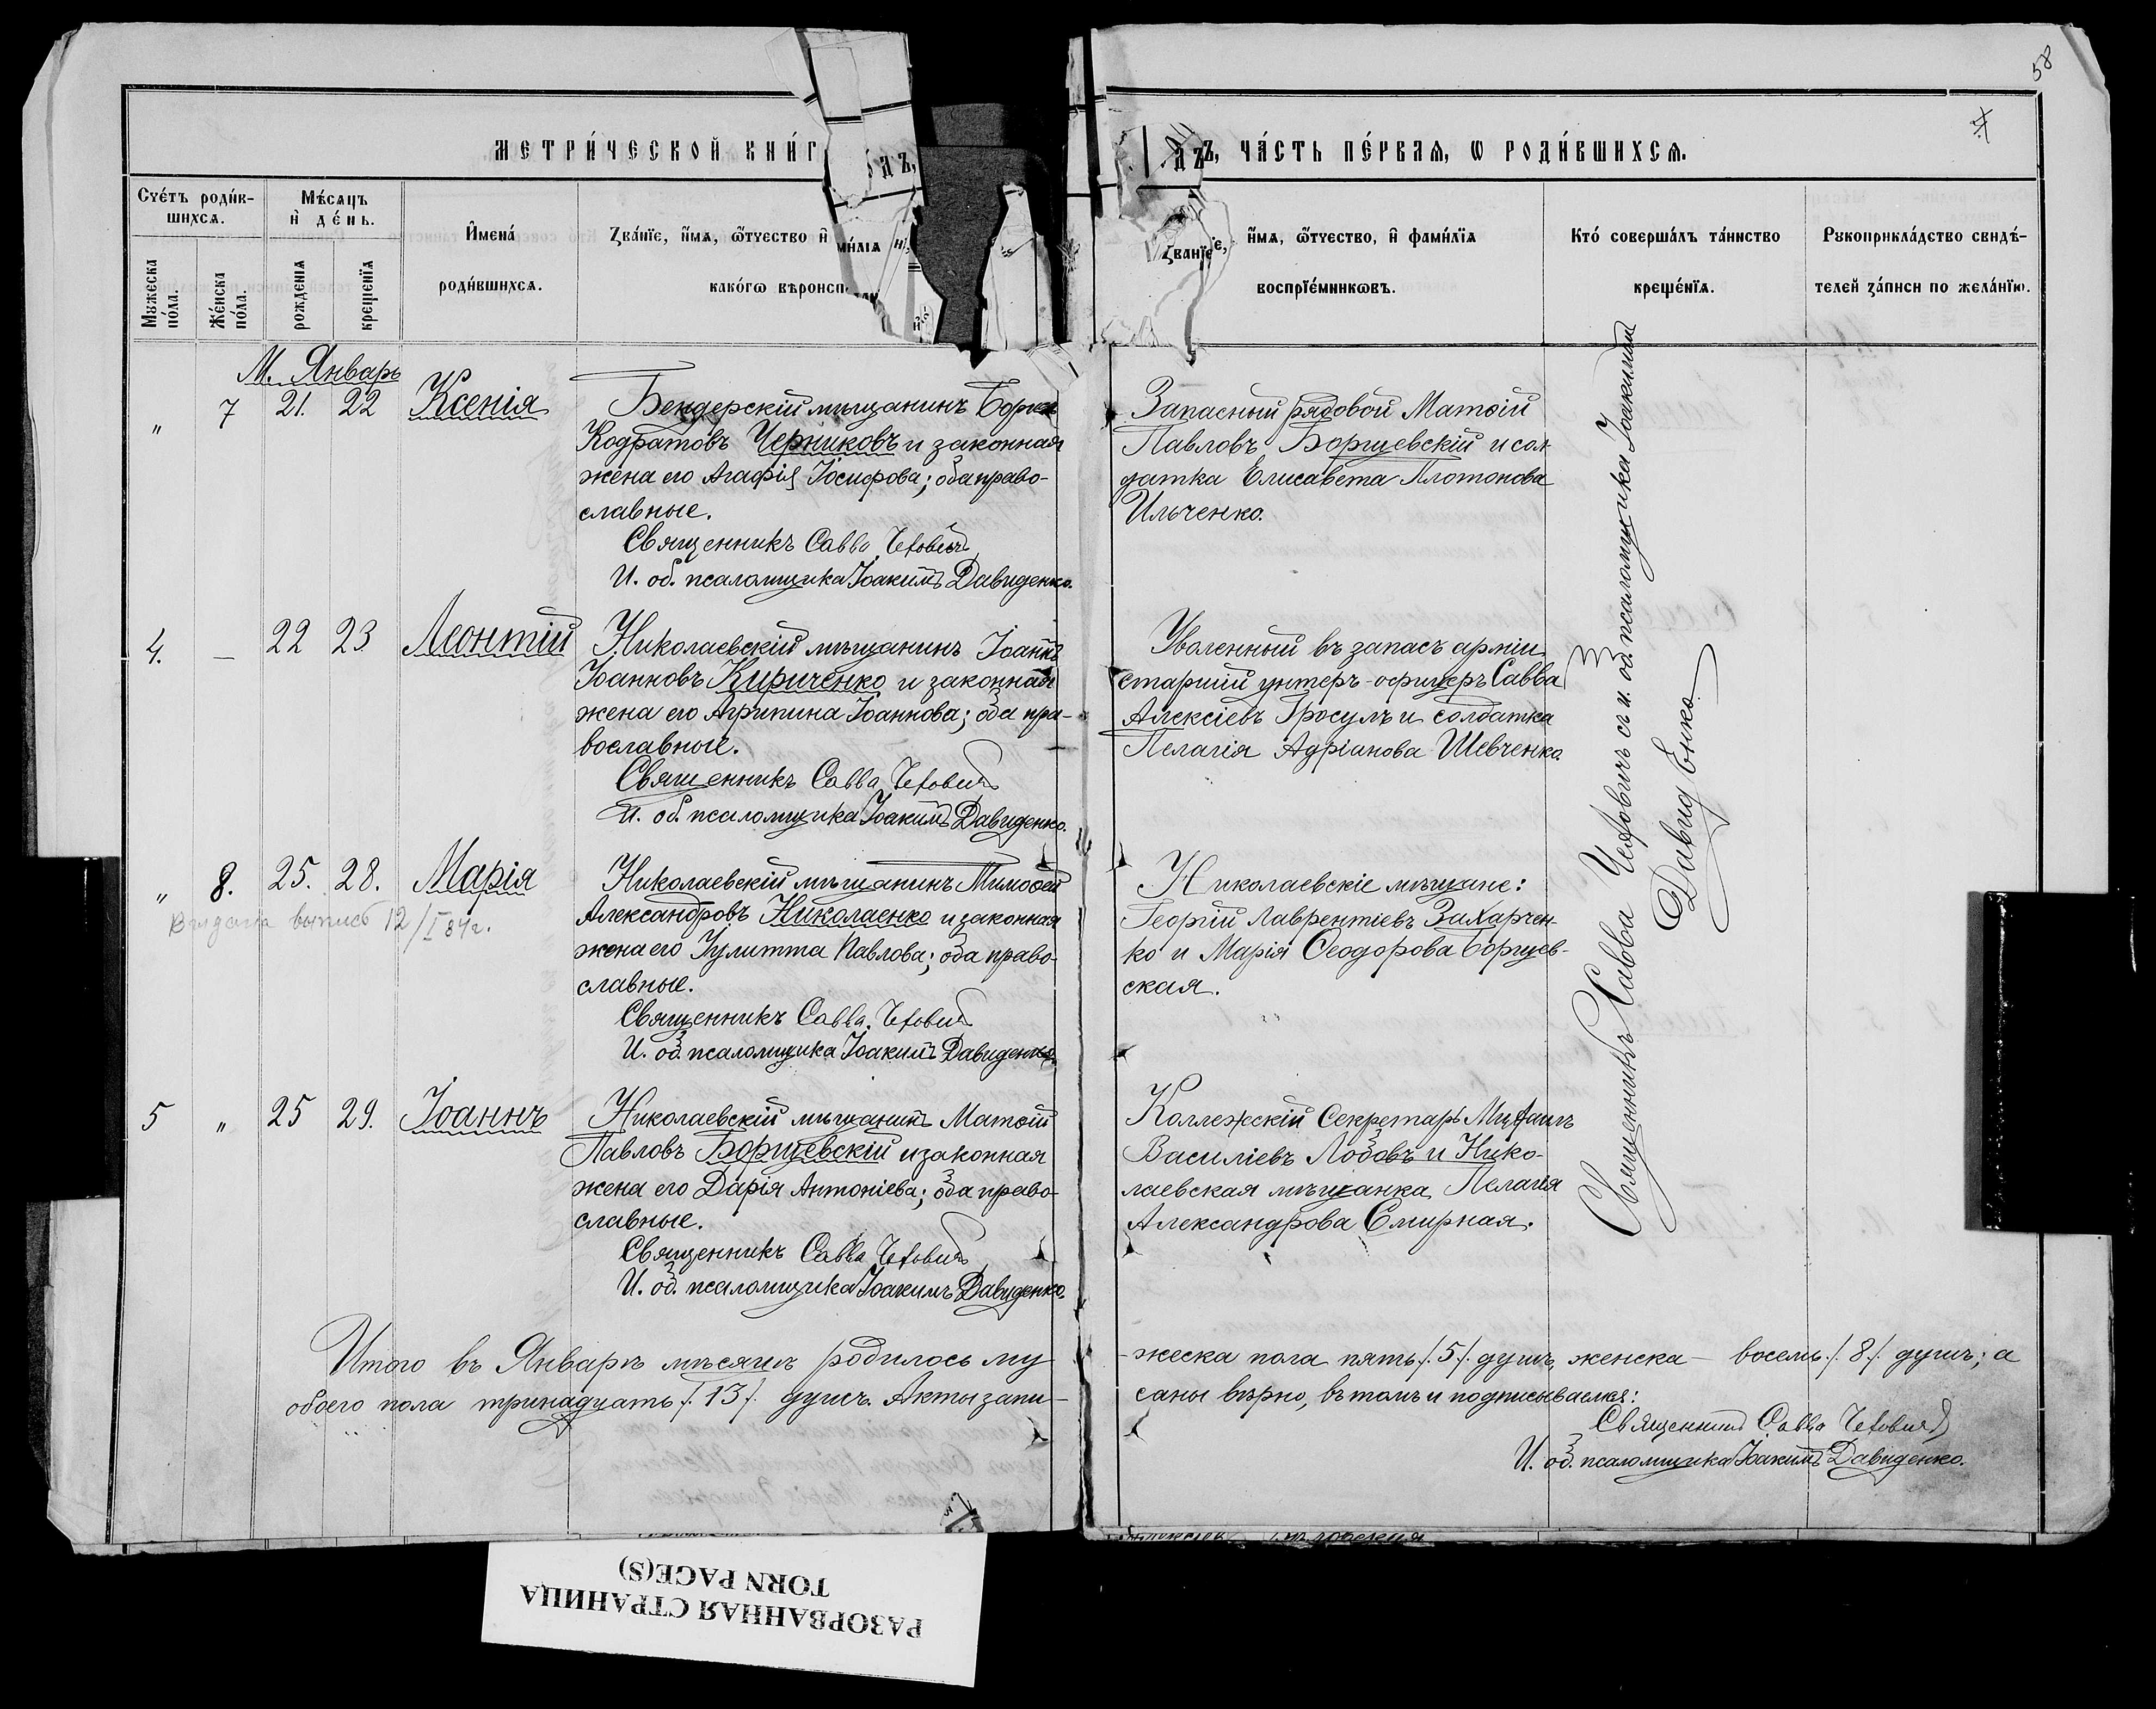 58
4
МЕТРИ́ЧЕСКОЙ КНИ́Г
ДЪ,
ДЪ, ЧА́СТЬ ПЕ́РВАѦ, Ѡ РОДИ́ВШИХСѦ.
Сче́тъ роди́в-
шихсѧ.
Мꙋ́жеска по́ла.
Же́нска по́ла.
Мѣ́сѧцъ
и҆ де́нь.
рожде́нїѧ
креще́нїѧ
И҆мена́
роди́вшихсѧ.
Зва́нїе, и҆́мѧ, ѻ҆́тчество и҆
ми́лїѧ
како́гѡ вѣроисп
Зва́нїе, и҆́мѧ, ѻ҆́тчество, и҆ фами́лїѧ
воспрїе́мникѡвъ.
Кто́ соверша́лъ та́инство
креще́нїѧ.
Рꙋкоприкла́дство свидѣ́-
телей за́писи по жела́нїю.
М. Январь
" 7 21. 22 Ксенія
Бендерскій мѣщанинъ Борис
Кодратовъ Черниковъ и законная
жена его Агафія Іосифова; оба право-
славные.
Священникъ Савва Чехович
И. об. псаломщика Іоакимъ Давиденко.
Запасный рядовой Матѳій
Павловъ Борщевскій и сол
датка Елисавета Платонова
Ильченко.
4. — 22 23 Леонтій
Николаевскій мѣщанинъ Іоаннъ
Іоанновъ Кириченко и законная
жена его Агрипина Іоаннова; оба пра-
вославные.
Священникъ Савва Чехович
И. об. псаломщика Іоакимъ Давиденко.
Уволенный въ запасъ арміи
старший унтеръ-офицеръ Савва
Алексіевъ Гросулъ и солдатка
Пелагія Адріанова Шевченко.
" 8. 25. 28. Марія
Выдана выпись 12/I 84 г.
Николаевскій мѣщанинъ Тимоѳей
Александровъ Николаенко и законная
жена его Іулитта Павлова; оба право-
славные.
Священникъ Савва Чехович
И. об. псаломщика Іоакимъ Давиденко.
Николаевскіе мѣщане:
Георгій Лаврентіевъ Захарчен-
ко и Марія Ѳеодорова Борщев-
ская.
5 " 25 29. Іоаннъ
Николаевскій мѣщанинъ Матѳій
Павловъ Борщевскій и законная
жена его Дарія Антоніева; оба право-
славные.
Священникъ Савва Чехович
И. об. псаломщика Іоакимъ Давиденко.
Коллежскій Секретарь Михаилъ
Василіевъ Лобовъ и Нико-
лаевская мѣщанка Пелагія
Александрова Смирная.
Священникъ Савва Чеховичъ съ и. об. псаломщика Іоакимъ
Давиденко.
Итого въ Январѣ мѣсяцѣ родилось му
жеска пола пять /.5/. душъ, женска — восемь /.8/. душъ; а
обоего пола тринадцать /.13/. душъ. Акты запи-
саны вѣрно, въ томъ и подписываемся:
Священникъ Савва Чехович
И. об. псаломщика Іоакимъ Давиденко.
РАЗОРВАННАЯ СТРАНИЦА
TORN PAGE(S)